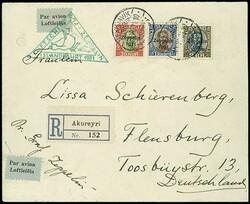 Par avion
Loftleiðis
1931
Fräulein
Lissa Schürenberg,
Flensburg,
Toosbüystr. 13
Deutschland
R
Akureyri
No. 152
Par avion
Loftleiðis
Pr. Graf Zeppelin